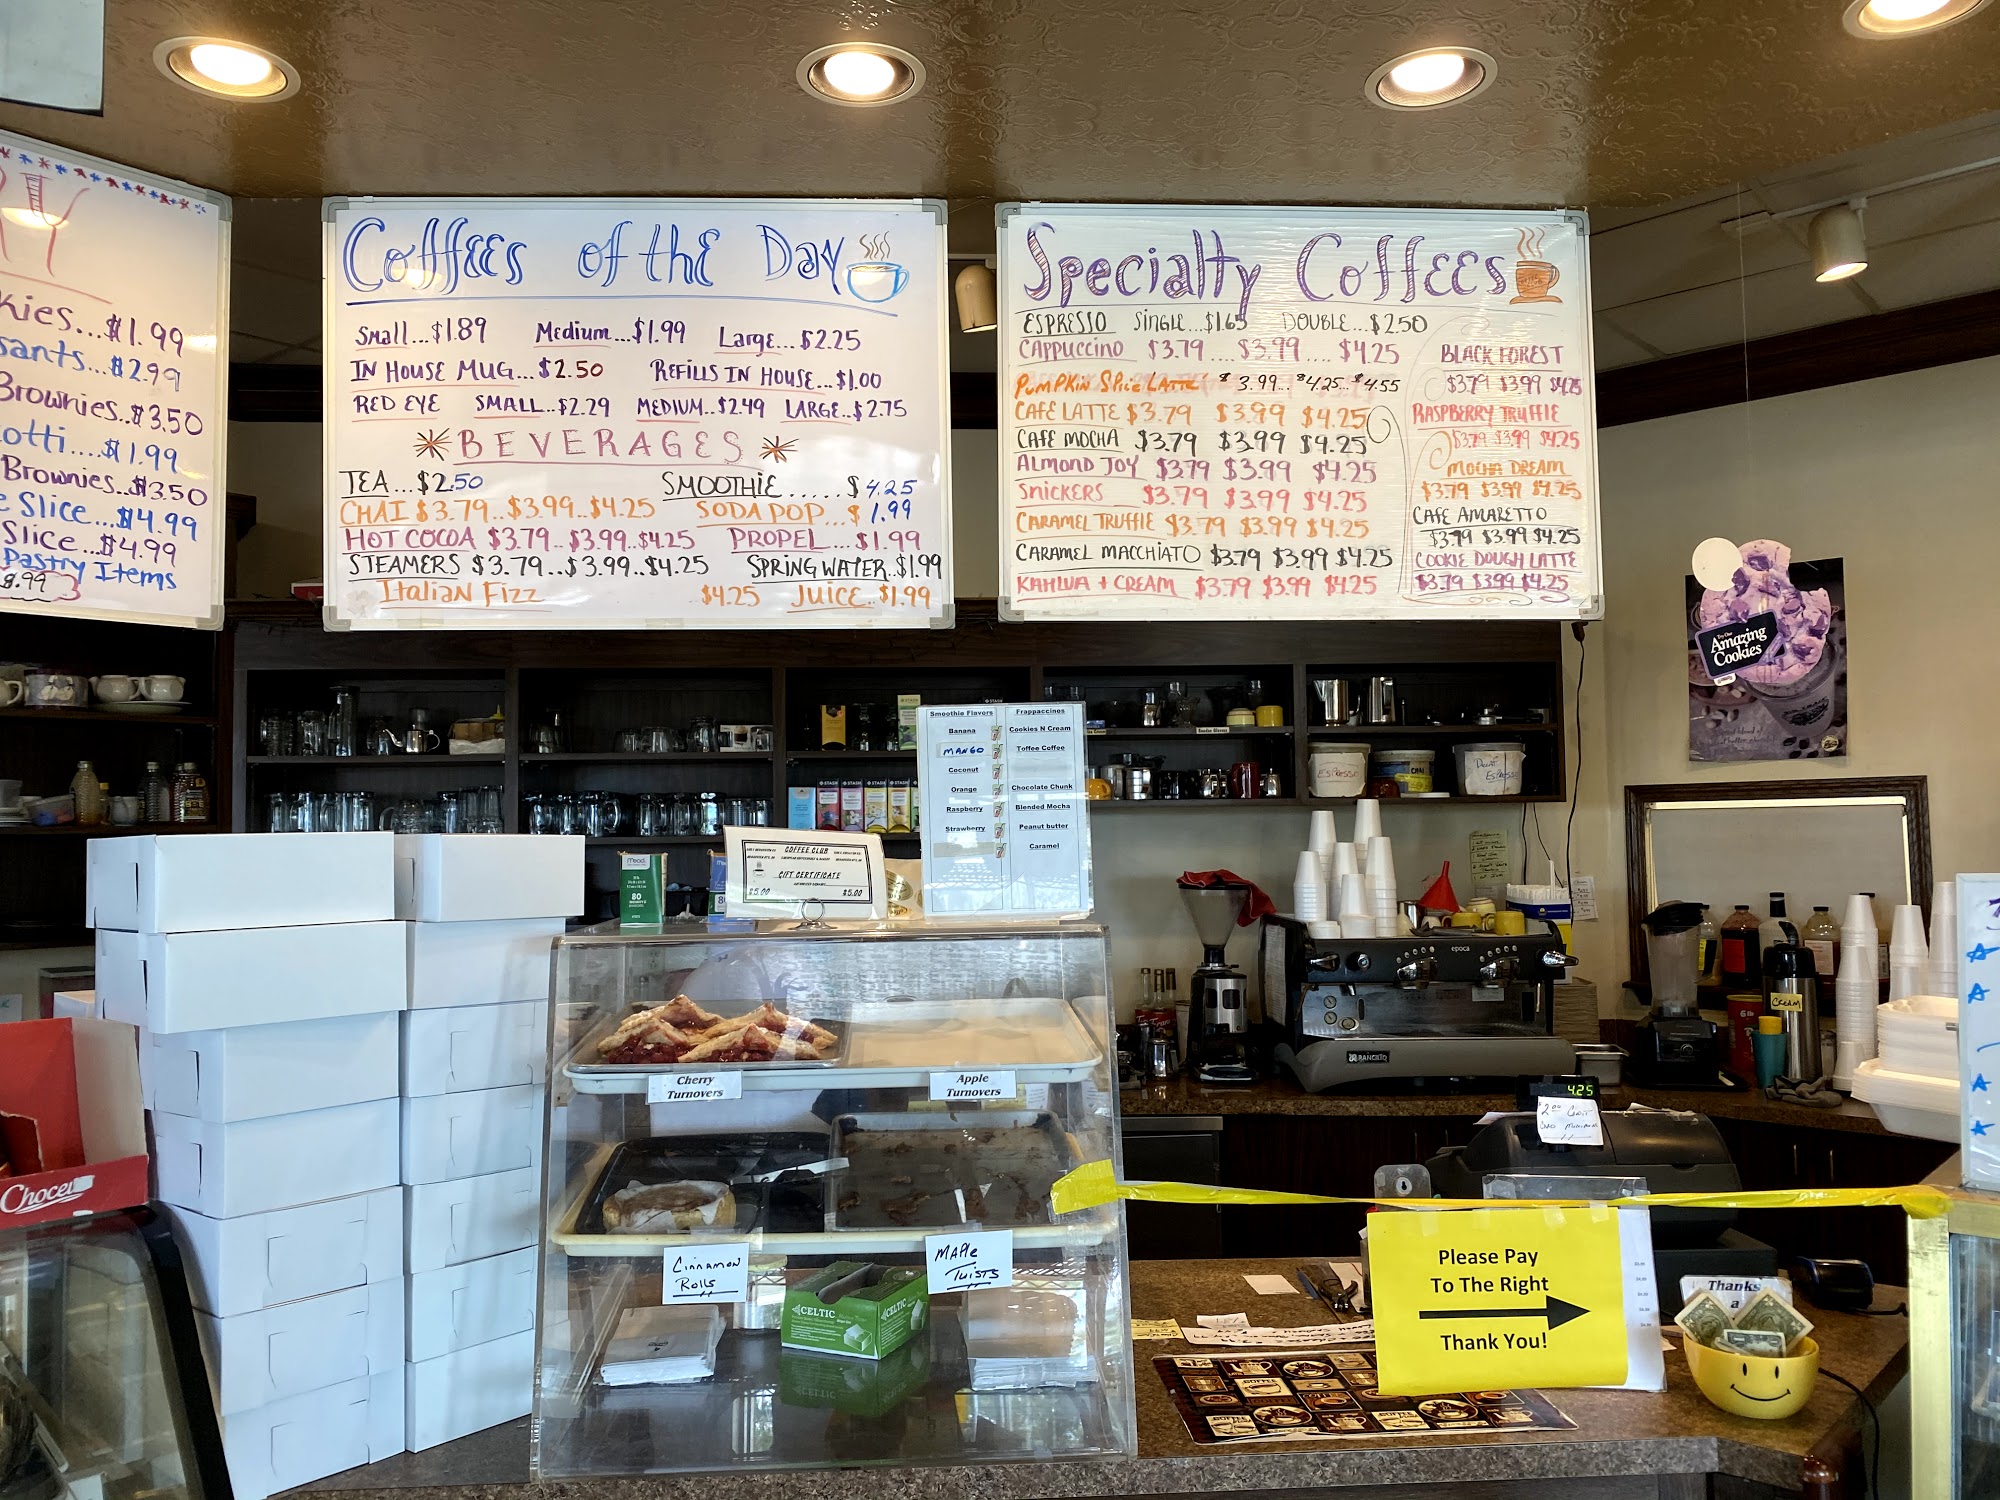 kies...$1.99
sants...$2.99
Brownies..$3.50
otti....$1.99
Brownies..$3.50
e Slice...$4.99
Slice...$4.99
Pastry Items
Coffees of the Day
Small...$1.89 Medium...$1.99 Large...$2.25
IN HOUSE MUG...$2.50 REFILLS IN HOUSE...$1.00
RED EYE SMALL..$2.29 MEDIUM..$2.49 LARGE..$2.75
BEVERAGES
TEA...$2.50 SMOOTHIE.....$4.25
CHAI $3.79..$3.99..$4.25 SODA POP...$1.99
HOT COCOA $3.79..$3.99..$4.25 PROPEL...$1.99
STEAMERS $3.79...$3.99..$4.25 SPRING WATER..$1.99
Italian Fizz $4.25 JUICE..$1.99
Specialty Coffees
ESPRESSO SINGLE...$1.65 DOUBLE...$2.50
CAPPUCCINO $3.79....$3.99....$4.25
PUMPKIN SPICE LATTE $3.99...$4.25...$4.55
CAFE LATTE $3.79 $3.99 $4.25
CAFE MOCHA $3.79 $3.99 $4.25
ALMOND JOY $3.79 $3.99 $4.25
SNICKERS $3.79 $3.99 $4.25
CARAMEL TRUFFLE $3.79 $3.99 $4.25
CARAMEL MACCHIATO $3.79 $3.99 $4.25
KAHLUA + CREAM $3.79 $3.99 $4.25
BLACK FOREST
$3.79 $3.99 $4.25
RASPBERRY TRUFFLE
$3.79 $3.99 $4.25
MOCHA DREAM
$3.79 $3.99 $4.25
CAFE AMARETTO
$3.79 $3.99 $4.25
COOKIE DOUGH LATTE
$3.79 $3.99 $4.25
Try Our
Amazing
Cookies
Smoothie Flavors
Banana
MANGO
Coconut
Orange
Raspberry
Strawberry
Frappaccinos
Cookies N Cream
Toffee Coffee
Chocolate Chunk
Blended Mocha
Peanut butter
Caramel
ESPRESSO
Decaf
Espresso
Mead
80
COFFEE CLUB
GIFT CERTIFICATE
$5.00 $5.00
epoca
RANCILIO
CREAM
Cherry
Turnovers
Apple
Turnovers
Cinnamon
Rolls
Maple
Twists
CELTIC
CELTIC
4.25
Please Pay
To The Right
Thank You!
Thanks
a